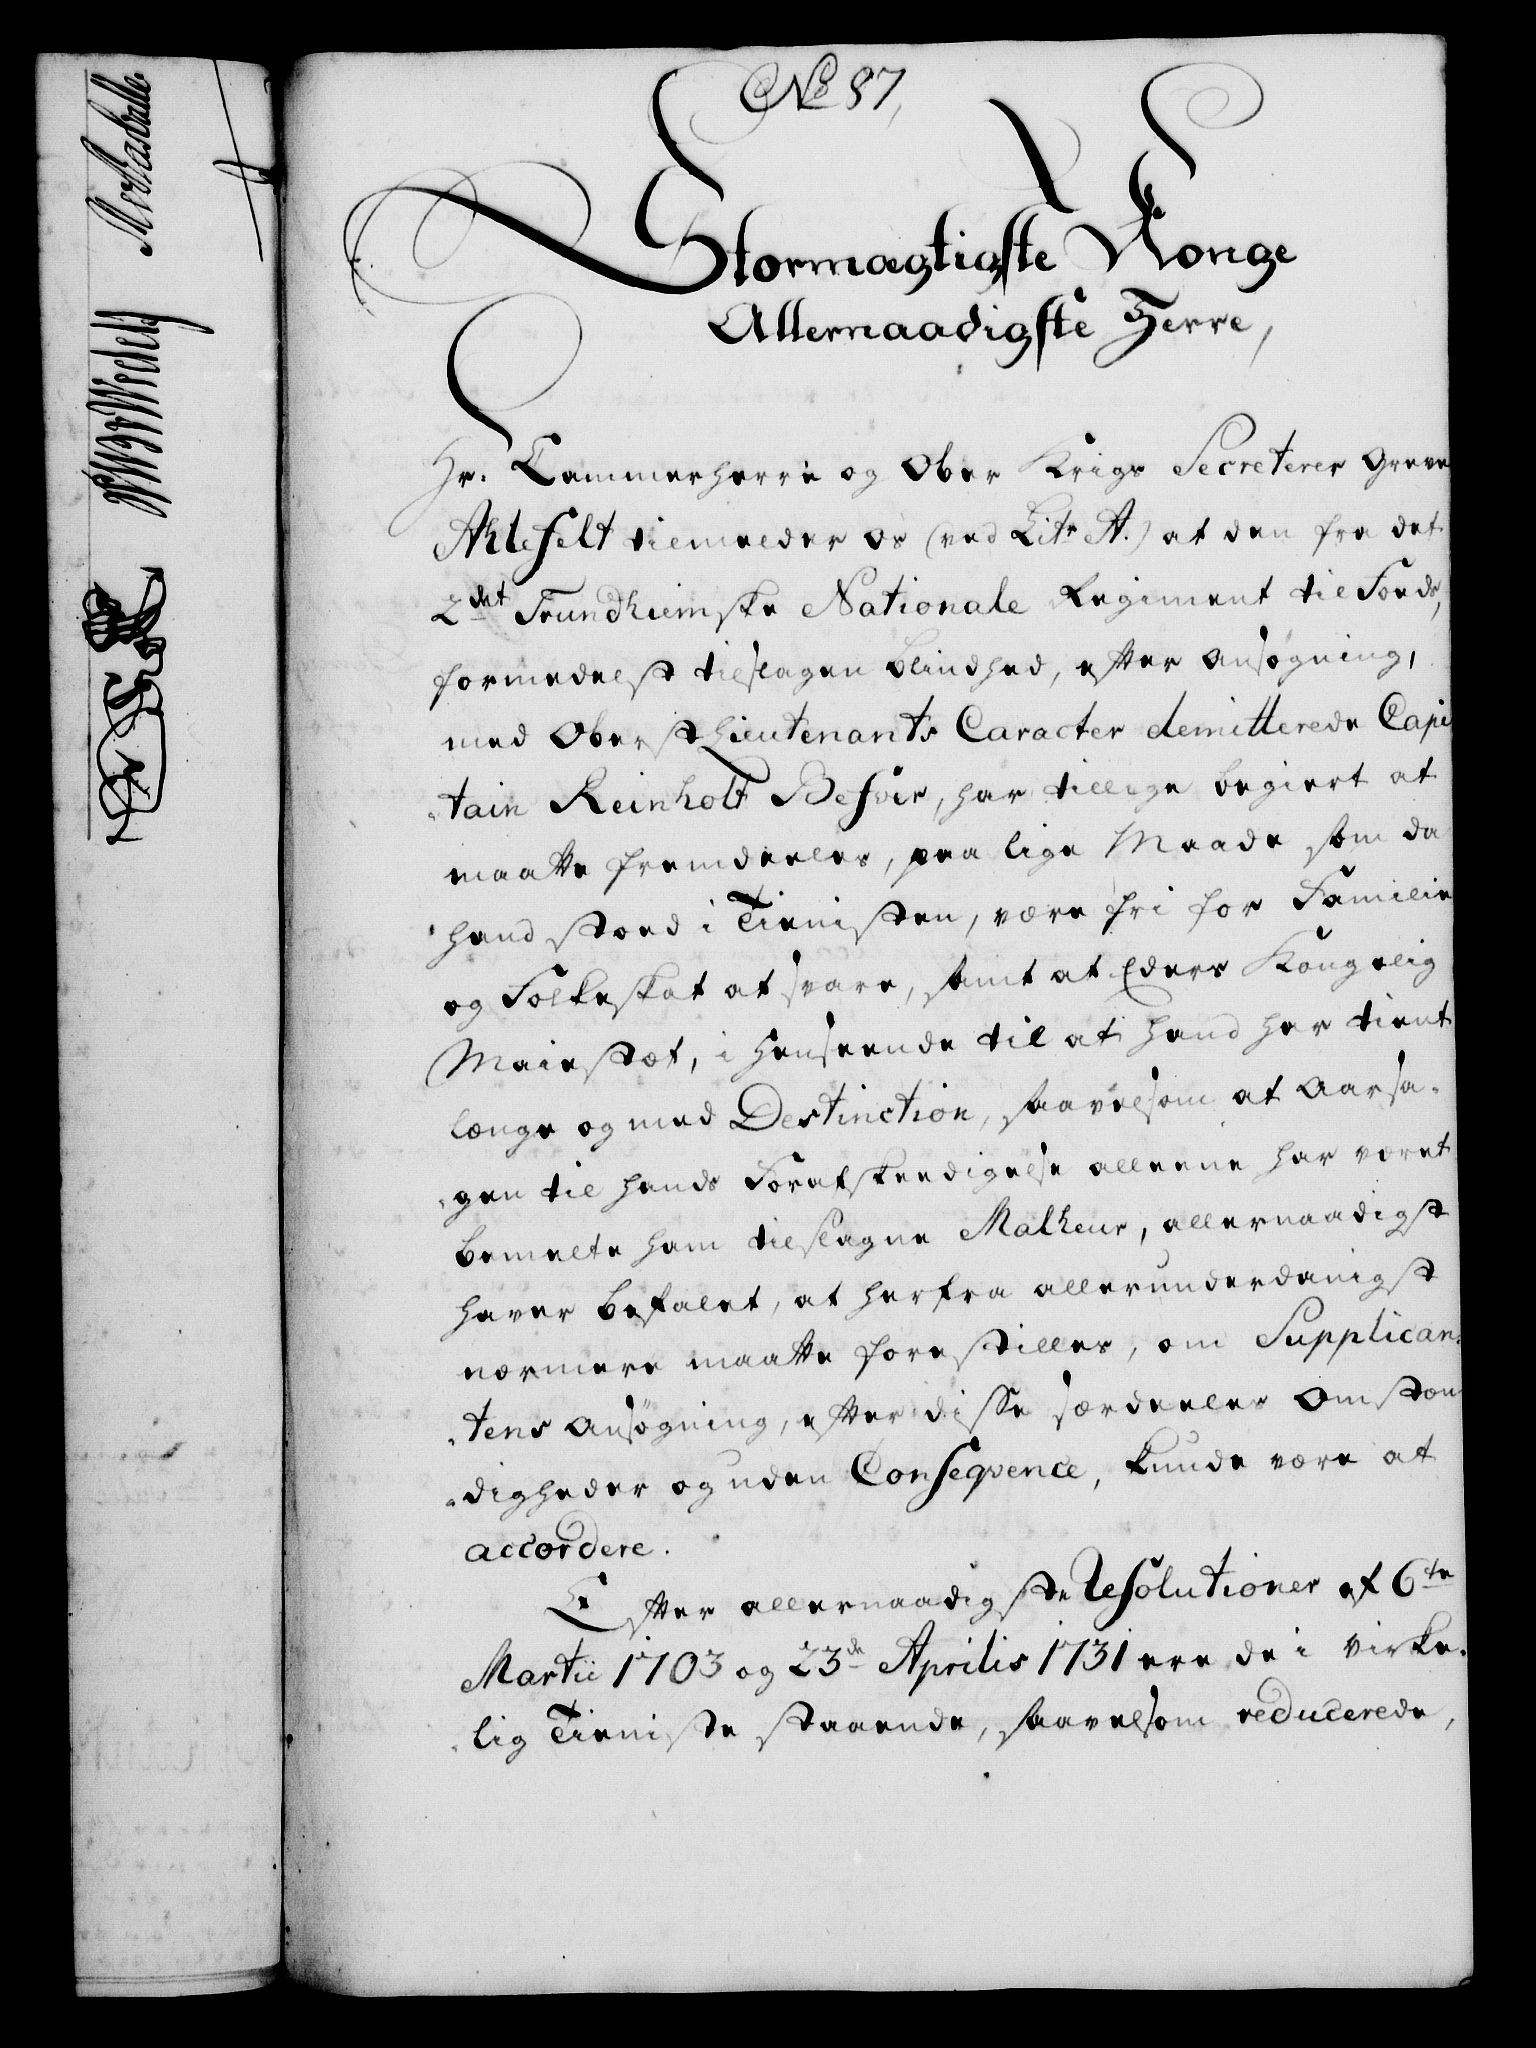 No 87,
Stormægtigste Konge
Allernaadigste Herre,
Hr. Cammerherre og Ober Krigs Secreterer Greve
Ahlefelt tilmelder os (ved Litr A.) at den fra det
2det Trundhiemske Nationale Regiment til Foeds,
formedelst tilslagen blindhed, efter ansøgning,
med Oberst Lieutenants Caracter demitterede Capi
-tain Reinholt Besvir, har tillige begiert at
maatte fremdeeles, paa lige Maade som da
hand stoed i Tienisten, være fri for Familie
og Folkeskat at svare, samt at Eders Kongelig
Maiestæt, i henseende til at hand har tient
længe og med Destinction, saavelsom at aarsa-
-gen til hands Forafskeedigelse alleene har været
bemelte ham tilslagne Malheur, allernaadigst
haver befalet, at herfra allerunderdanigst
nærmere maatte forestilles, om Supplican-
-tens ansøgning, efter disse særdeeles Omstæn
-digheder og uden Conseqvence, kunde være at
accordere.
Efter allernaadigste Resolutioner af 6te
Martii 1703 og 23de Aprilis 1731 ere de i virke-
-lig Tieniste staaende, saavelsom reducerede,